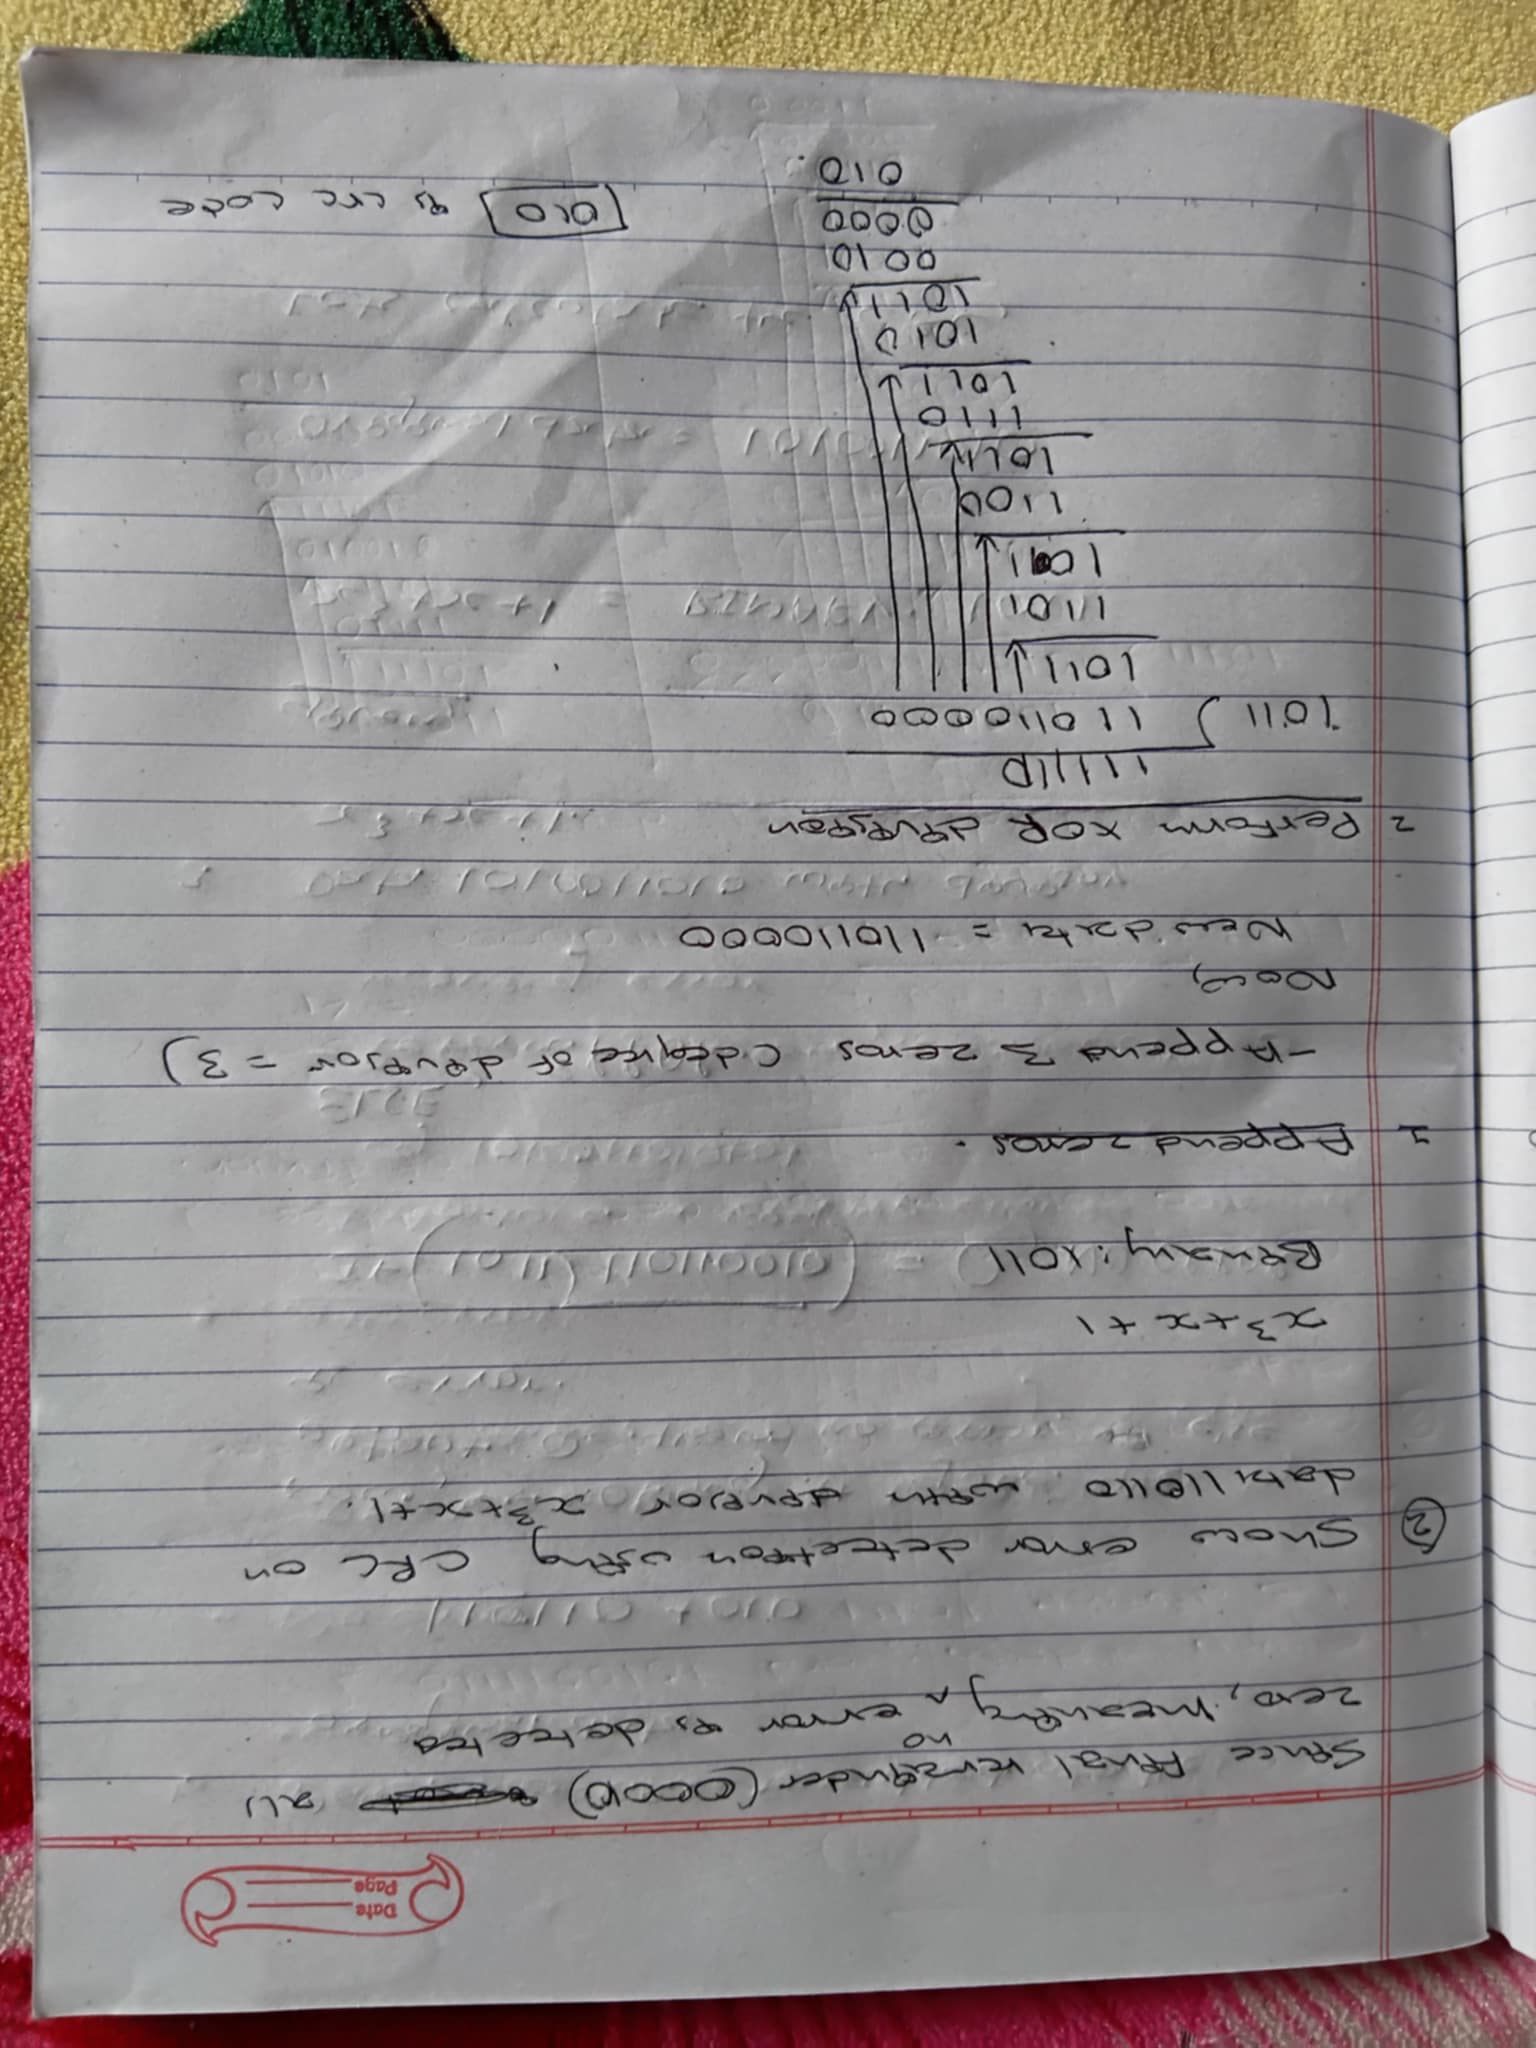 Date
Page
Since final remainder (0000) all
no
zero, meaning ^ error is detected
② Show error detection using CRC on
data 110110 with divisor x³+x+1.
x³+x+1
Binary: 1011
1 Append zeros.
- Append 3 zeros (degree of divisor = 3)
Now,
New data = 110110000
2 Perform XOR division
111110
1011 ) 110110000
1011
1101
1011
1100
1011
1110
1011
1010
1011
0010
0000
010
010 is crc code